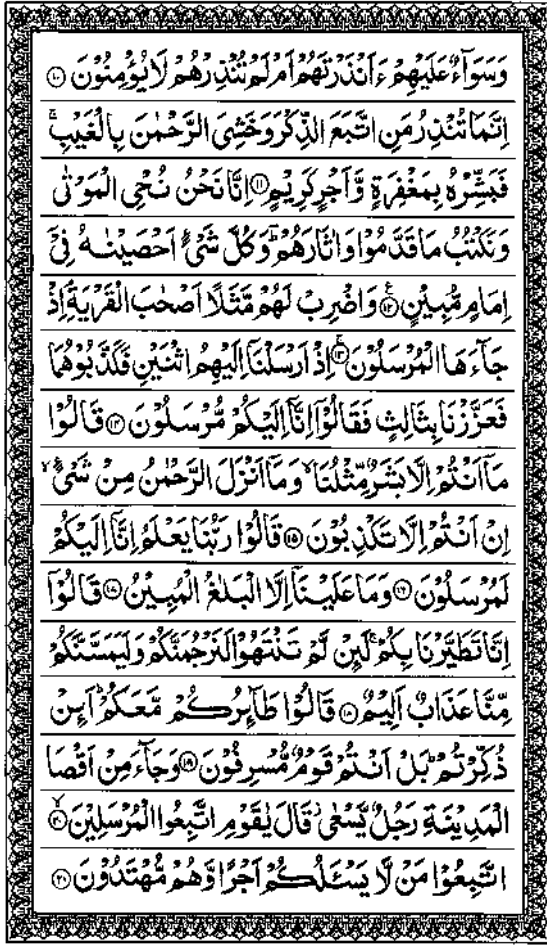 وَسَوَآءٌ عَلَيْهِمْ ءَاَنْذَرْتَهُمْ اَمْ لَمْ تُنْذِرْهُمْ لَا يُؤْمِنُوْنَ ۝۱۰
اِنَّمَا تُنْذِرُ مَنِ اتَّبَعَ الذِّكْرَ وَخَشِيَ الرَّحْمٰنَ بِالْغَيْبِ ۚ
فَبَشِّرْهُ بِمَغْفِرَةٍ وَّاَجْرٍ كَرِيْمٍ ۝۱۱ اِنَّا نَحْنُ نُحْيِ الْمَوْتٰى
وَنَكْتُبُ مَا قَدَّمُوْا وَاٰثَارَهُمْ ۛؕ وَكُلَّ شَيْءٍ اَحْصَيْنٰهُ فِيْٓ
اِمَامٍ مُّبِيْنٍ ۝۱۲ وَاضْرِبْ لَهُمْ مَّثَلًا اَصْحٰبَ الْقَرْيَةِ ۘ اِذْ
جَآءَهَا الْمُرْسَلُوْنَ ۝۱۳ اِذْ اَرْسَلْنَآ اِلَيْهِمُ اثْنَيْنِ فَكَذَّبُوْهُمَا
فَعَزَّزْنَا بِثَالِثٍ فَقَالُوْٓا اِنَّآ اِلَيْكُمْ مُّرْسَلُوْنَ ۝۱۴ قَالُوْا
مَآ اَنْتُمْ اِلَّا بَشَرٌ مِّثْلُنَا ۙ وَمَآ اَنْزَلَ الرَّحْمٰنُ مِنْ شَيْءٍ ۙ
اِنْ اَنْتُمْ اِلَّا تَكْذِبُوْنَ ۝۱۵ قَالُوْا رَبُّنَا يَعْلَمُ اِنَّآ اِلَيْكُمْ
لَمُرْسَلُوْنَ ۝۱۶ وَمَا عَلَيْنَآ اِلَّا الْبَلٰغُ الْمُبِيْنُ ۝۱۷ قَالُوْٓا
اِنَّا تَطَيَّرْنَا بِكُمْ ۚ لَئِنْ لَّمْ تَنْتَهُوْا لَنَرْجُمَنَّكُمْ وَلَيَمَسَّنَّكُمْ
مِّنَّا عَذَابٌ اَلِيْمٌ ۝۱۸ قَالُوْا طَآئِرُكُمْ مَّعَكُمْ ؕ اَئِنْ
ذُكِّرْتُمْ ؕ بَلْ اَنْتُمْ قَوْمٌ مُّسْرِفُوْنَ ۝۱۹ وَجَآءَ مِنْ اَقْصَا
الْمَدِيْنَةِ رَجُلٌ يَّسْعٰى ۫ قَالَ يٰقَوْمِ اتَّبِعُوا الْمُرْسَلِيْنَ ۝۲۰
اتَّبِعُوْا مَنْ لَّا يَسْـَٔلُكُمْ اَجْرًا وَّهُمْ مُّهْتَدُوْنَ ۝۲۱